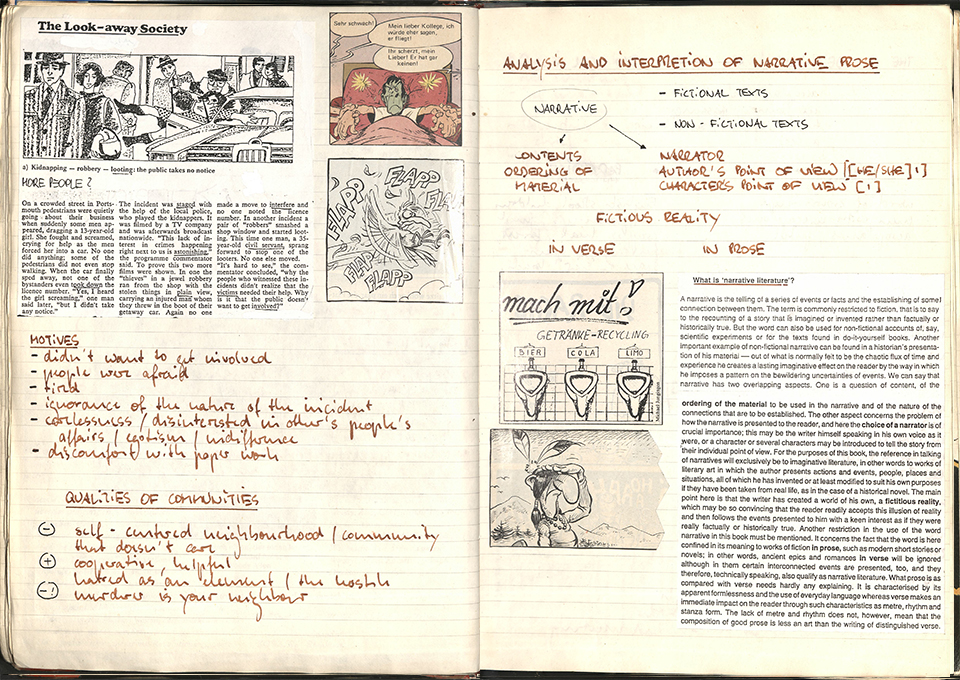 The Look-away Society
a) Kidnapping — robbery — looting: the public takes no notice
MORE PEOPLE?
On a crowded street in Ports-
mouth pedestrians were quietly
going about their business
when suddenly some men ap-
peared, dragging a 13-year-old
girl. She fought and screamed,
crying for help as the men
forced her into a car. No one
did anything; some of the
pedestrians did not even stop
walking. When the car finally
sped away, not one of the
bystanders even took down the
licence number. "Yes, I heard
the girl screaming," one man
said later, "but I didn't take
any notice."
The incident was staged with
the help of the local police,
who played the kidnappers. It
was filmed by a TV company
and was afterwards broadcast
nationwide. "This lack of in-
terest in crimes happening
right next to us is astonishing,"
the programme commentator
said. To prove this two more
films were shown. In one the
"thieves" in a jewel robbery
ran from the shop with the
stolen things in plain view,
carrying an injured man whom
they threw in the boot of their
getaway car. Again no one
made a move to interfere and
no one noted the licence
number. In another incident a
pair of "robbers" smashed a
shop window and started loot-
ing. This time one man, a 35-
year-old civil servant, sprang
forward to stop one of the
looters. No one else moved.
"It's hard to see," the com-
mentator concluded, "why the
people who witnessed these in-
cidents didn't realize that the
victims needed their help. Why
is it that the public doesn't
want to get involved?"
Sehr schwach!
Mein lieber Kollege, ich
würde eher sagen,
er fliegt!
Ihr scherzt, mein
Lieber! Er hat gar
keinen!
FLAPP
FLAPP
FLAPP
FLAPP
FLAPP
FLAPP
MOTIVES
- didn't want to get involved
- people were afraid
- tired
- ignorance of the nature of the incident
- carelessness / disinterested in other's people's
affairs / egotism / indifference
- discomfort with paper work
QUALITIES OF COMMUNITIES
(-) self-centured neighbourhood / community
that doesn't care
(+) cooperative, helpful
hatred as an element / the hostile
(-!) murderer is your neighbour
ANALYSIS AND INTERPRETION OF NARRATIVE PROSE
NARRATIVE
- FICTIONAL TEXTS
- NON-FICTIONAL TEXTS
CONTENTS
ORDERING OF
MATERIAL
NARRATOR
AUTHOR'S POINT OF VIEW [[HE/SHE] 1]
CHARACTER'S POINT OF VIEW [1]
FICTIOUS REALITY
IN VERSE
IN PROSE
mach mit!
GETRÄNKE-RECYCLING
BIER
COLA
LIMO
What is 'narrative literature'?
A narrative is the telling of a series of events or facts and the establishing of some
connection between them. The term is commonly restricted to fiction, that is to say
to the recounting of a story that is imagined or invented rather than factually or
historically true. But the word can also be used for non-fictional accounts of, say,
scientific experiments or for the texts found in do-it-yourself books. Another
important example of non-fictional narrative can be found in a historian's presenta-
tion of his material — out of what is normally felt to be the chaotic flux of time and
experience he creates a lasting imaginative effect on the reader by the way in which
he imposes a pattern on the bewildering uncertainties of events. We can say that
narrative has two overlapping aspects. One is a question of content, of the
ordering of the material to be used in the narrative and of the nature of the
connections that are to be established. The other aspect concerns the problem of
how the narrative is presented to the reader, and here the choice of a narrator is of
crucial importance; this may be the writer himself speaking in his own voice as it
were, or a character or several characters may be introduced to tell the story from
their individual point of view. For the purposes of this book, the reference in talking
of narratives will exclusively be to imaginative literature, in other words to works of
literary art in which the author presents actions and events, people, places and
situations, all of which he has invented or at least modified to suit his own purposes
if they have been taken from real life, as in the case of a historical novel. The main
point here is that the writer has created a world of his own, a fictitious reality,
which may be so convincing that the reader readily accepts this illusion of reality
and then follows the events presented to him with a keen interest as if they were
really factual or historically true. Another restriction in the use of the word
narrative in this book must be mentioned. It concerns the fact that the word is here
confined in its meaning to works of fiction in prose, such as modern short stories or
novels; in other words, ancient epics and romances in verse will be ignored
although in them certain interconnected events are presented, too, and they
therefore, technically speaking, also qualify as narrative literature. What prose is as
compared with verse needs hardly any explaining. It is characterised by its
apparent formlessness and the use of everyday language whereas verse makes an
immediate impact on the reader through such characteristics as metre, rhythm and
stanza form. The lack of metre and rhythm does not, however, mean that the
composition of good prose is less an art than the writing of distinguished verse.